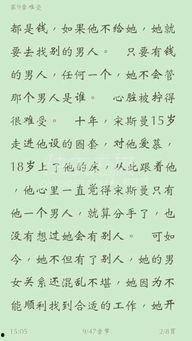 第9章难受
都是钱，如果他不给她，她就
要去找别的男人。 只要有钱
的男人，任何一个，她不会管
那个男人是谁。 心脏被拧得
很难受。 十年，宋斯曼15岁
走进他设的圈套，对他爱慕，
18岁上了他的床，从此跟着他
，他心里一直觉得宋斯曼只有
他一个男人，就算分手了，也
没有想过她会有别人。 可如
今，她不但有了别人，她的男
女关系还混乱不堪，她因为不
能顺利找到合适的工作，她开
15:05 9/47章节 2/8页